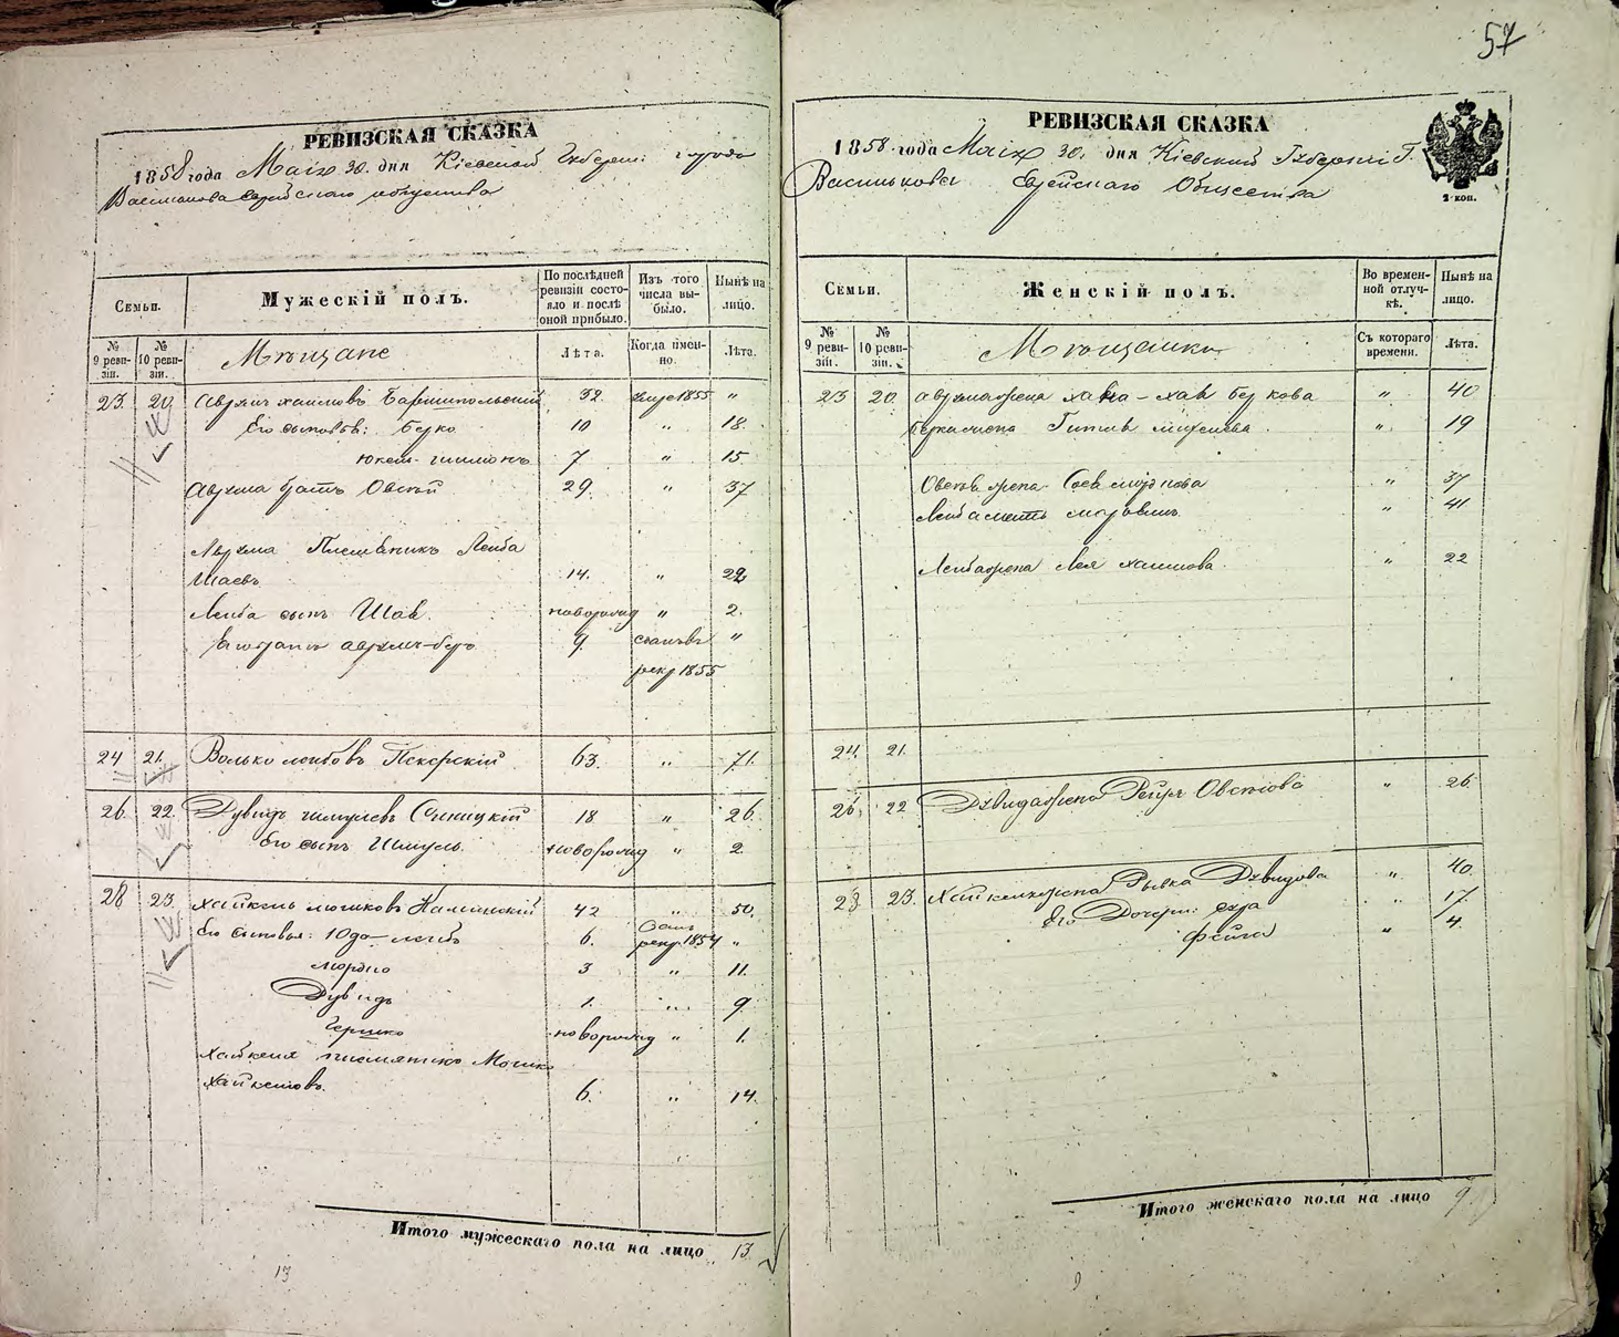 57
РЕВИЗСКАЯ СКАЗКА
1858 года Маія 30. дня Кіевской Губерніи города
Василькова Еврейскаго общества
Семьи.
Мужескій полъ.
По послѣдней ревизіи состояло и послѣ оной прибыло.
Изъ того числа выбыло.
Нынѣ на лицо.
№ 9 ревизіи.
№ 10 ревизіи.
Мѣщане
Лѣта.
Когда именно.
Лѣта.
23. 20. Аврумъ Хаимовъ Баришпольский 32. 1855 "
Его сыновья: Берко 10 " 18.
Юкель-Шимонъ 7 " 15.
Аврума братъ Овсей 29. " 37
Аврума Племѣникъ Лейба
Шаевъ 14. " 22
Лейба сынъ Шая. новорожд " 2.
Аврумъ-Беръ 9 рекр 1855 "
24 21. Волько Лейбовъ 63. " 71.
26. 22. Дувидъ Шмулевъ Синицкій 18 " 26.
Его сынъ Шмуль. новорожд " 2.
28 23. Хайкель Мошковъ Каминскій 42 " 50.
Его сыновья: Юдо-Лейбъ 6. рекр. 1854 "
Мордко 3 " 11.
Дувидъ 1. " 9.
Гершко новорожд " 1.
Хайкеля племятикъ Мошко
Хайкелювъ. 6. " 14.
Итого мужескаго пола на лицо 13.
13
РЕВИЗСКАЯ СКАЗКА
1858 года Маія 30. дня Кіевский Губерніи Г.
Василькова Еврейскаго Общества
2 коп.
Семьи.
Женскій полъ.
Во временной отлучкѣ.
Нынѣ на лицо.
№ 9 ревизіи.
№ 10 ревизіи.
Мѣщанки
Съ котораго времени.
Лѣта.
23 20. Аврума жена Хана-Хая Беркова " 40
Берка жена Гитля " 19
Овсея жена " 37
Лейба мать " 41
Лейба жена Лея Хаимова. " 22
24. 21.
26. 22 Дувида жена Овсеюва " 26.
28 23. Хайкеля жена Рывка Дувидова " 40.
Его Дочери: Сура " 17.
Фейга " 4.
Итого женскаго пола на лицо 9.
9